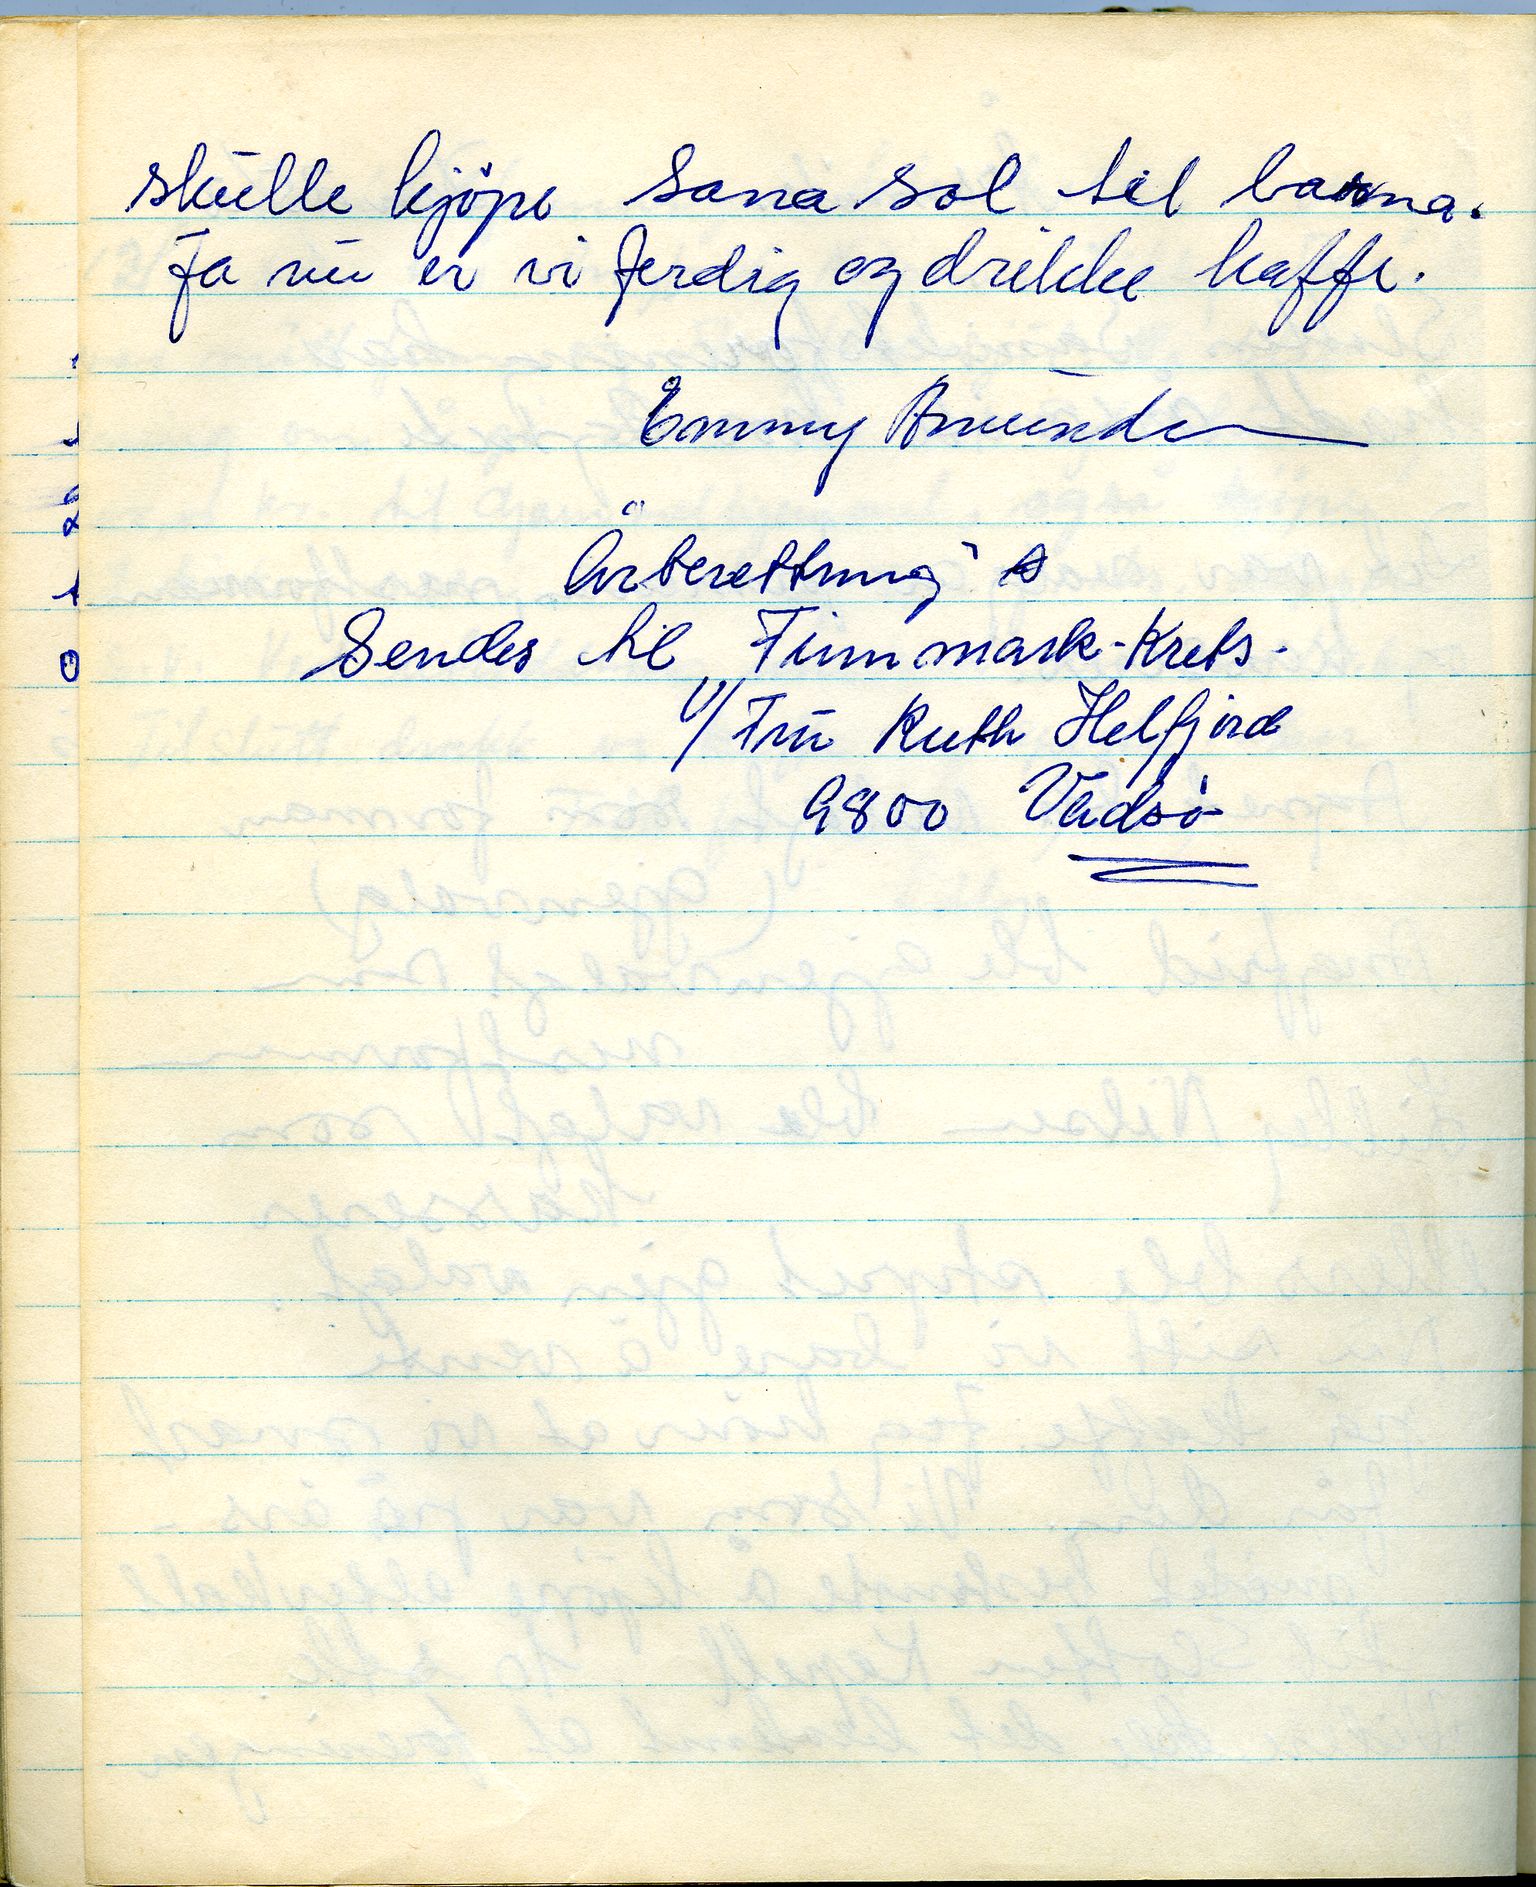 skulle kjøpe Sana sol til barna.
Ja nu er vi ferdig og drikke kaffe.
Emmy Amundsen
Årberettning
Sendes til Finnmark-Krets.
v/ Fru Ruth Helfjord
9800 Vadsø